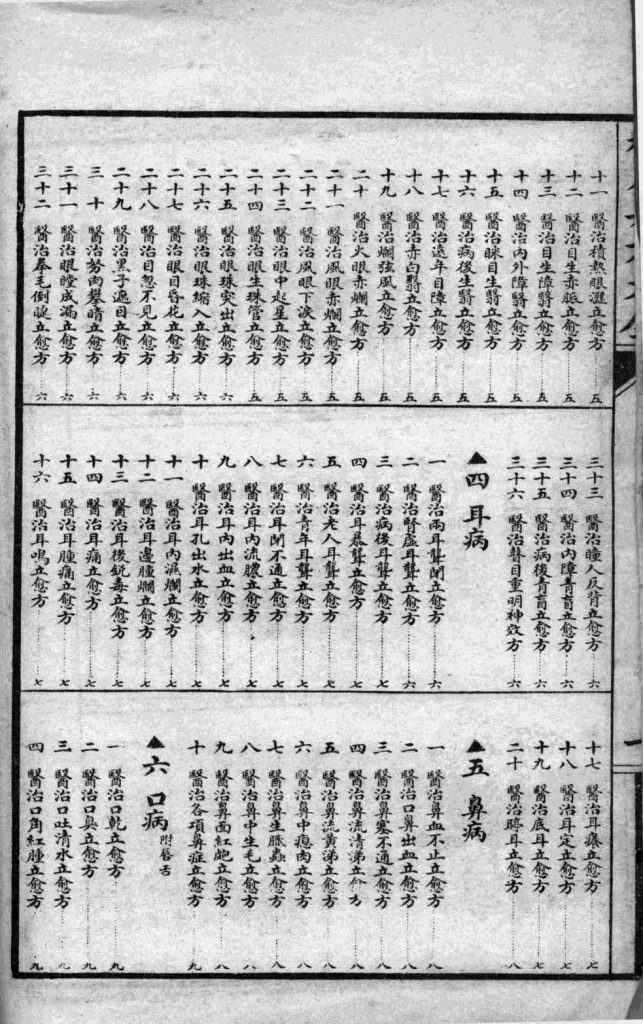 十一 醫治積熱眼澀立愈方 五
十二 醫治目生赤脈立愈方 五
十三 醫治目生障翳立愈方 五
十四 醫治內外障翳立愈方 五
十五 醫治眯目生翳立愈方 五
十六 醫治病後生翳立愈方 五
十七 醫治遠年目障立愈方 五
十八 醫治赤白翳立愈方 五
十九 醫治爛弦風立愈方 五
二十 醫治火眼赤爛立愈方 五
二十一 醫治風眼赤爛立愈方 五
二十二 醫治風眼下淚立愈方 五
二十三 醫治眼中起星立愈方 五
二十四 醫治眼生珠管立愈方 五
二十五 醫治眼珠突出立愈方 六
二十六 醫治眼珠縮入立愈方 六
二十七 醫治眼目昏花立愈方 六
二十八 醫治目忽不見立愈方 六
二十九 醫治黑子遮目立愈方 六
三十 醫治努肉攀睛立愈方 六
三十一 醫治眼瞠成漏立愈方 六
三十二 醫治拳毛倒睫立愈方 六
三十三 醫治瞳人反背立愈方 六
三十四 醫治內障青盲立愈方 六
三十五 醫治病後青盲立愈方 六
三十六 醫治瞽目重明神效方 六
▲四 耳病
一 醫治兩耳聾閉立愈方 六
二 醫治腎虛耳聾立愈方 六
三 醫治病後耳聾立愈方 七
四 醫治耳暴聾立愈方 七
五 醫治老人耳聾立愈方 七
六 醫治青年耳聾立愈方 七
七 醫治耳閉不通立愈方 七
八 醫治耳內流膿立愈方 七
九 醫治耳內出血立愈方 七
十 醫治耳孔出水立愈方 七
十一 醫治耳內濕爛立愈方 七
十二 醫治耳邊腫爛立愈方 七
十三 醫治耳後銳毒立愈方 七
十四 醫治耳痛立愈方 七
十五 醫治耳腫痛立愈方 七
十六 醫治耳鳴立愈方 七
十七 醫治耳癢立愈方 七
十八 醫治耳定立愈方 七
十九 醫治底耳立愈方 七
二十 醫治聤耳立愈方 八
▲五 鼻病
一 醫治鼻血不止立愈方 八
二 醫治口鼻出血立愈方 八
三 醫治鼻塞不通立愈方 八
四 醫治鼻流清涕立愈方 八
五 醫治鼻流黃涕立愈方 八
六 醫治鼻中瘜肉立愈方 八
七 醫治鼻生䐈蟲立愈方 八
八 醫治鼻中生毛立愈方 八
九 醫治鼻面紅皰立愈方 八
十 醫治各項鼻症立愈方 九
▲六 口病 附唇舌
一 醫治口乾立愈方 九
二 醫治口臭立愈方 九
三 醫治口吐清水立愈方 九
四 醫治口角紅腫立愈方 九